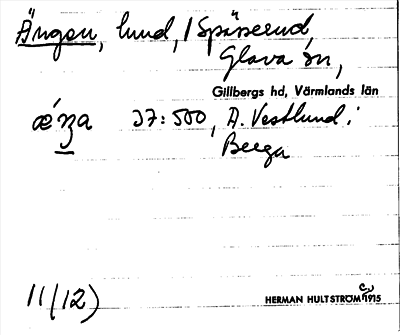 Ängen, lund, / Spässerud,
Glava sn,
Gillbergs hd, Värmlands län
37:500, A. Vestlund i
Berga
11(12)
HERMAN HULTSTRÖM 1915